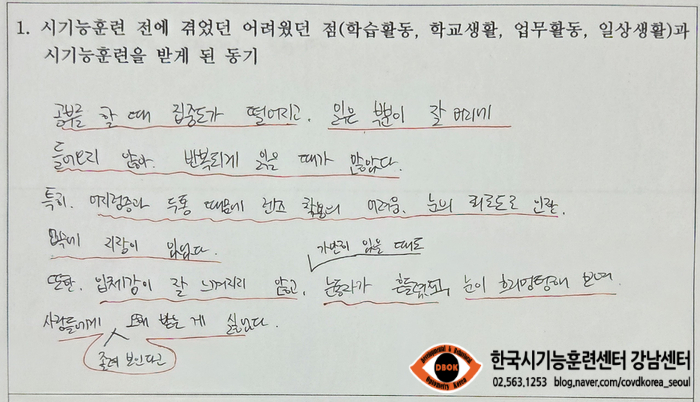 1. 시기능훈련 전에 겪었던 어려웠던 점(학습활동, 학교생활, 업무활동, 일상생활)과
시기능훈련을 받게 된 동기
공부를 할 때 집중도가 떨어지고, 읽은 부분이 잘 머리에
들어오지 않아. 반복되게 읽을 때가 많았다.
특히. 어지럼증과 두통 때문에 렌즈 착용의 어려움. 눈의 피로도로 인한.
지장이 있었다.
가만히 있을 때도
또한. 입체감이 잘 느껴지지 않고, 눈동자가 흔들렸고, 눈이 희미멍텅해 보여
사람들에게 오해 받는 게 싫었다.
졸려 보인다고
DBOK
한국시기능훈련센터 강남센터
02.563.1253 blog.naver.com/covdkorea_seoul